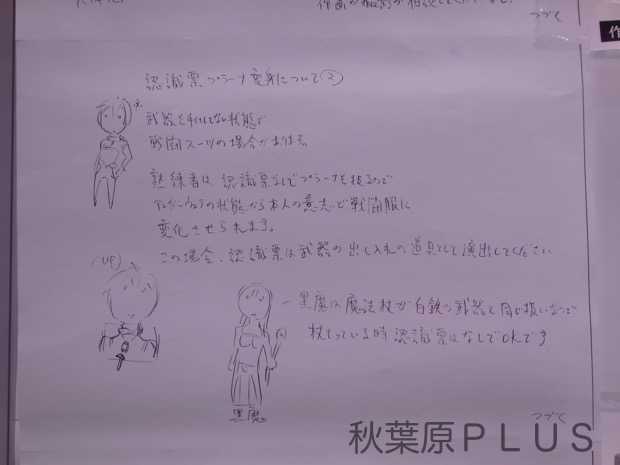 つづく
認識票 プラーナ変身について②
武器を手にしてない状態で
戦闘スーツの場合があります。
熟練者は認識票なしでプラーナを扱るので
アンダーウェアの状態から本人の意志で戦闘服に
変化させられます。
この場合、認識票は武器の出し入れの道具として演出してください
(up)
黒魔は魔法杖が白鉄の武器と同じ扱いなので
杖もっている時認識票はなしでOKです
黒魔
つづく
秋葉原PLUS